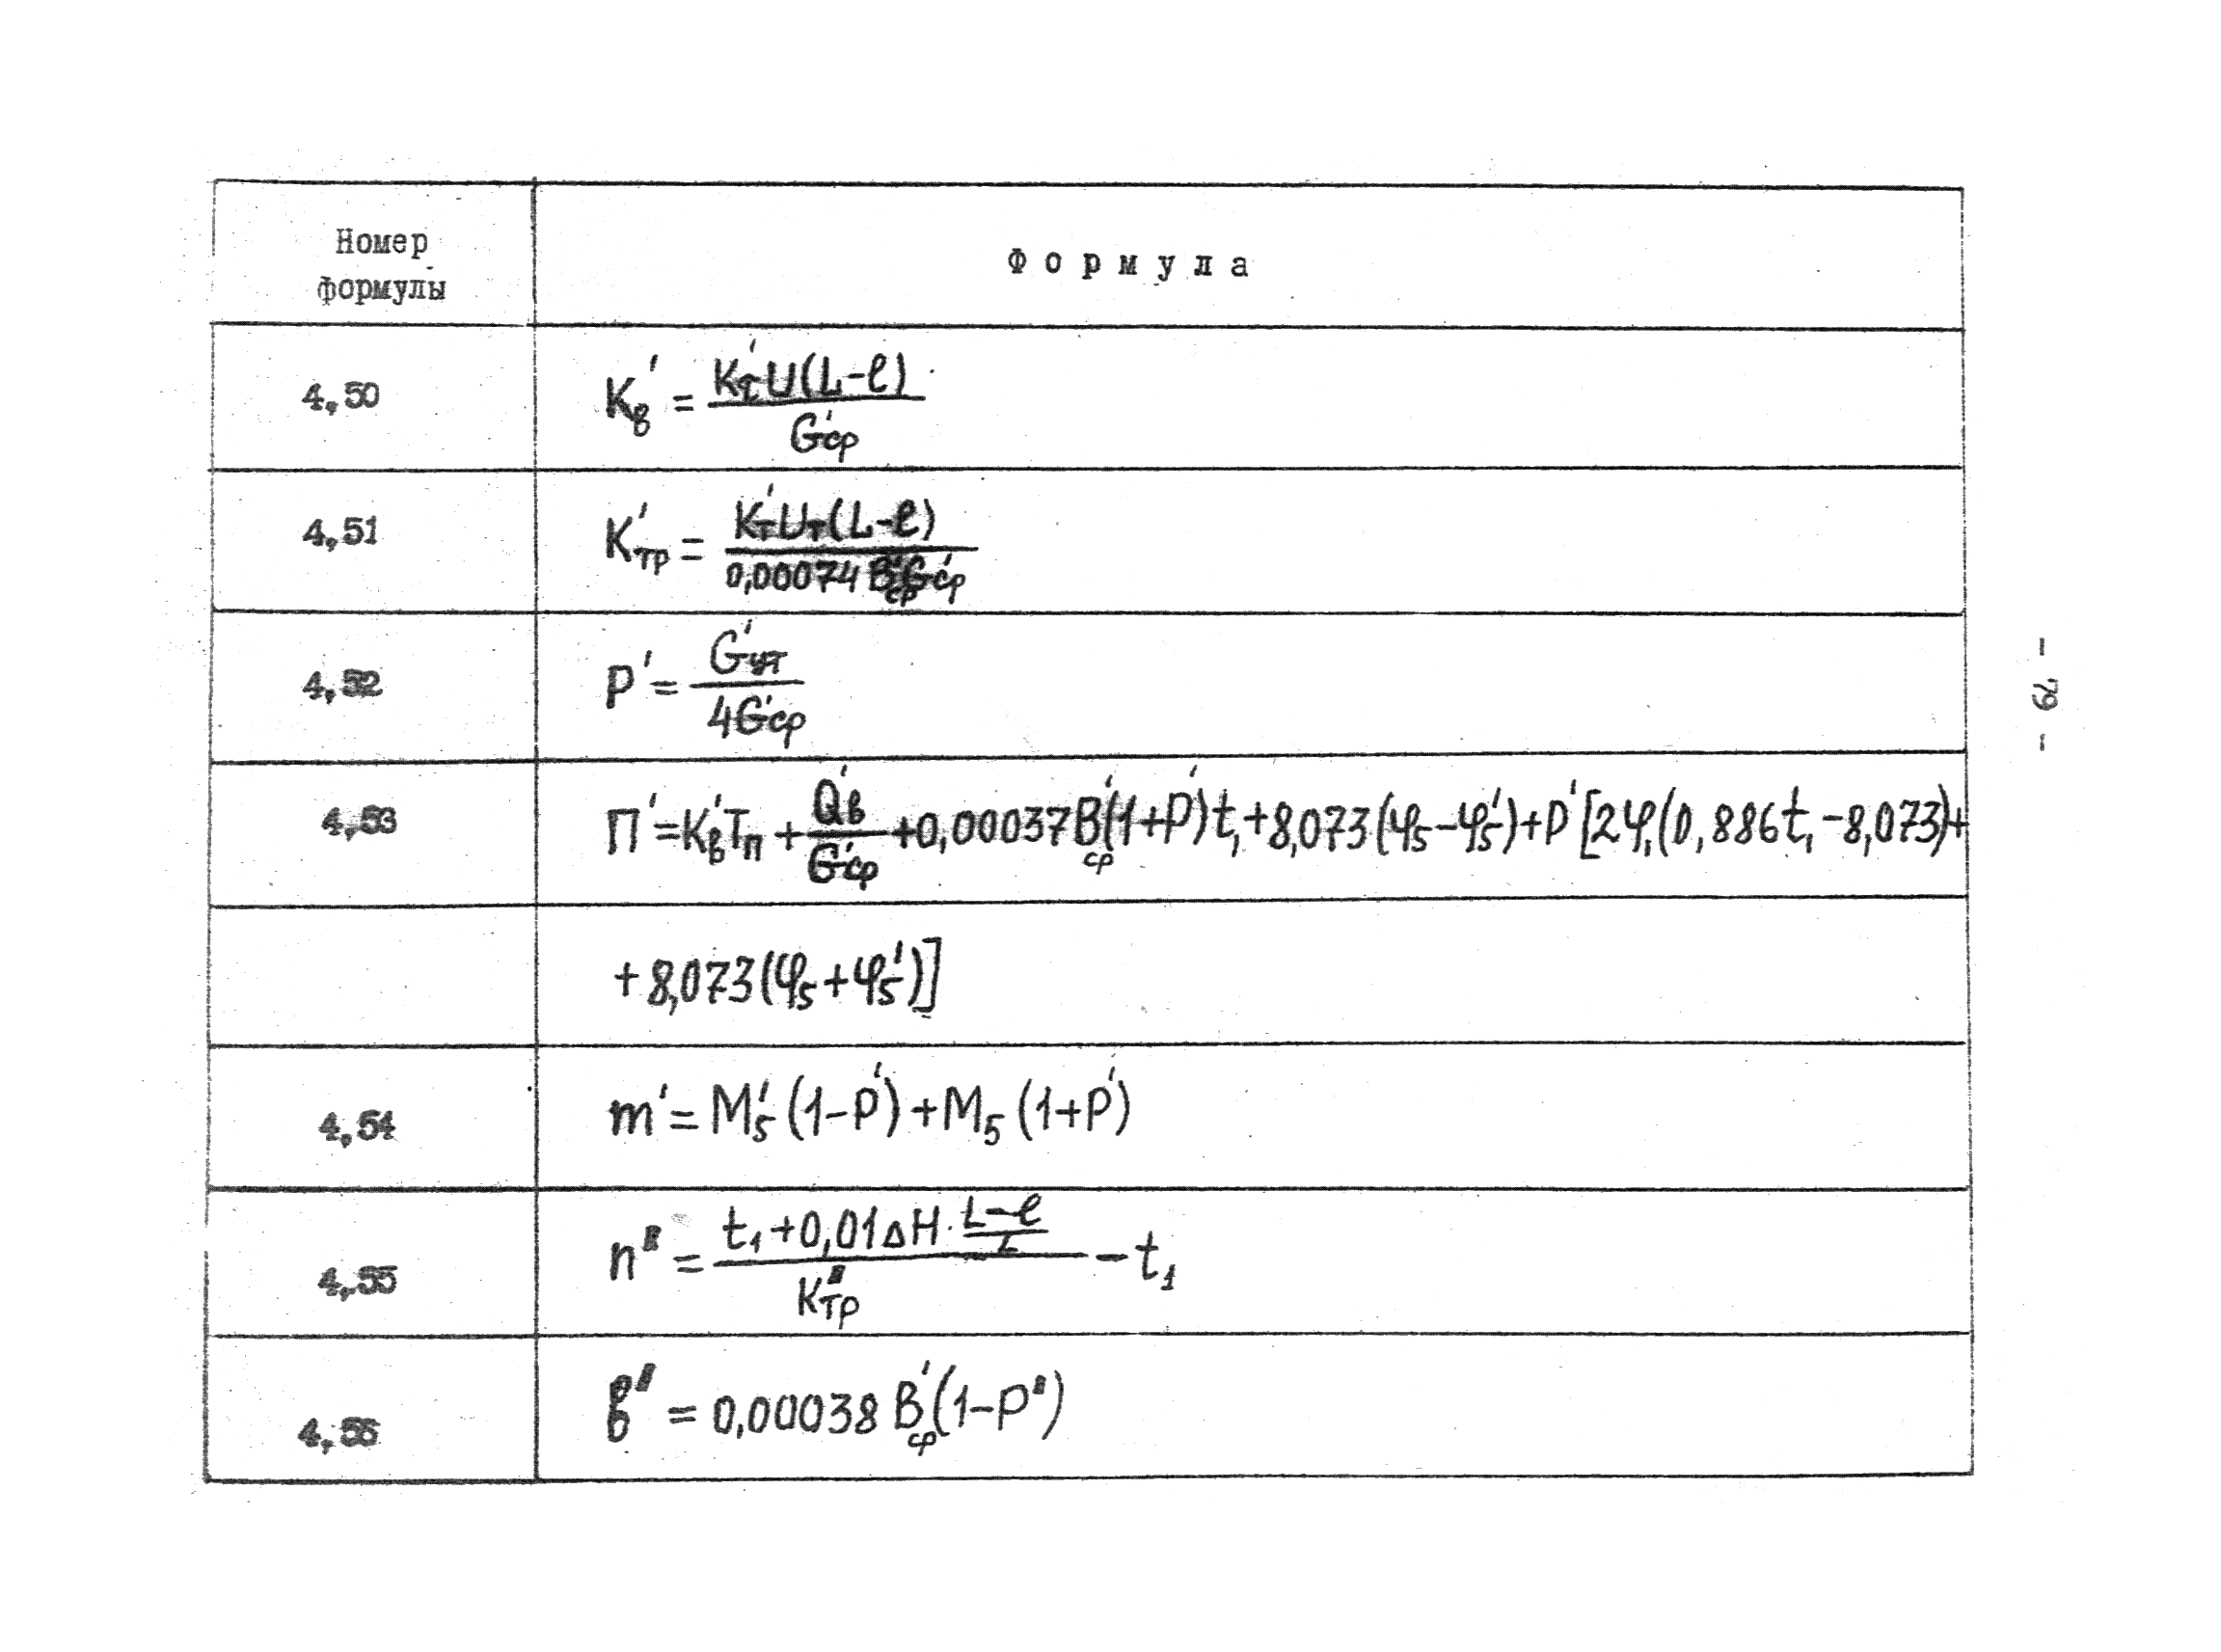 Номер
формулы
Ф о р м у л а
4,50
K_в' = K_τ'U(L-ℓ) / G'ср
4,51
K'_тр = K_т'U_т(L-ℓ) / 0,00074 B'ср G'ср
4,52
P' = G'ут / 4G'ср
4,53
П' = K'_в T_п + Q'_в / G'ср + 0,00037 B'ср (1+P')t₁ + 8,073(φ₅-φ₅') + P'[2φ₁(0,886t₁-8,073)+
+8,073(φ₅+φ₅')]
4,54
m' = M₅'(1-P') + M₅(1+P')
4,55
n" = (t₁+0,01ΔH · (L-ℓ)/L) / K"_тр - t₁
4,56
в" = 0,00038 B'ср (1-P")
- 79 -